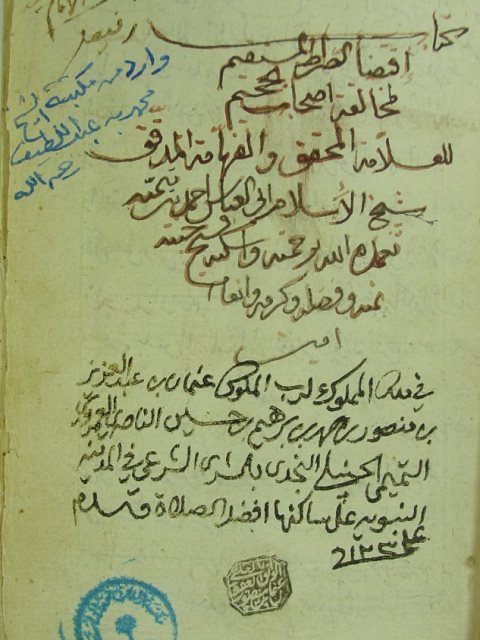 كتاب
اقتضا الصراط المستقيم
لمخالفة اصحاب الجحيم
للعلامة المحقق والفهامة المدقق
شيخ الاسلام ابي العباس احمد بن تيمية
تغمده الله برحمته واسكنه فسيح جنته
بمنه وفضله وكرمه
امين
وارد من مكتبة الشيخ
محمد بن عبد اللطيف
رحمه الله
في ملك المملوك لرب الملوك عثمان بن عبد العزيز
بن منصور بن حمد بن برهيم بن حسين الناصري العمروي
التميمي الحنبلي النجدي بالشرى الشرعي في المدينة
النبويه على ساكنها افضل الصلاة والسلام